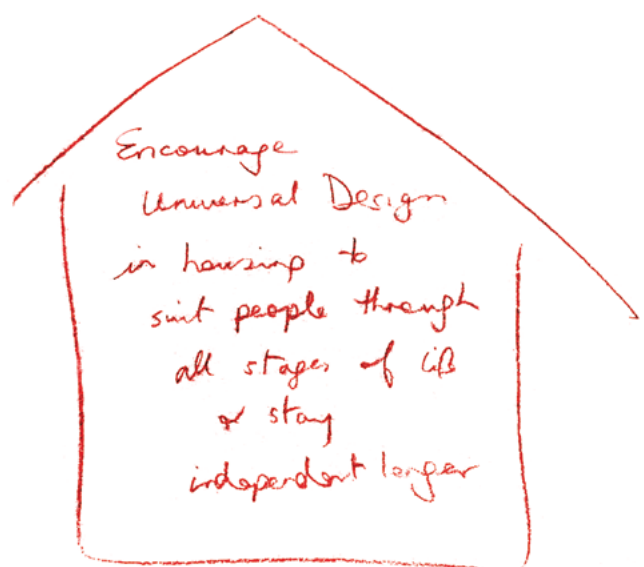 Encourage
Universal Design
in housing to
suit people through
all stages of life
or stay
independent longer